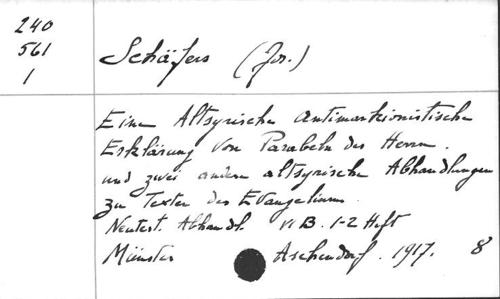 240
561
1
Schäfers (Jos.)
Eine Altsyrische antimarkionistische
Erklärung von Parabeln des Herrn.
und zwei andere altsyrische Abhandlungen
zu Texten des Evangeliums.
Neutest. Abhandl. VI B. 1-2 Heft
Münster Aschendorf. 1917. 8